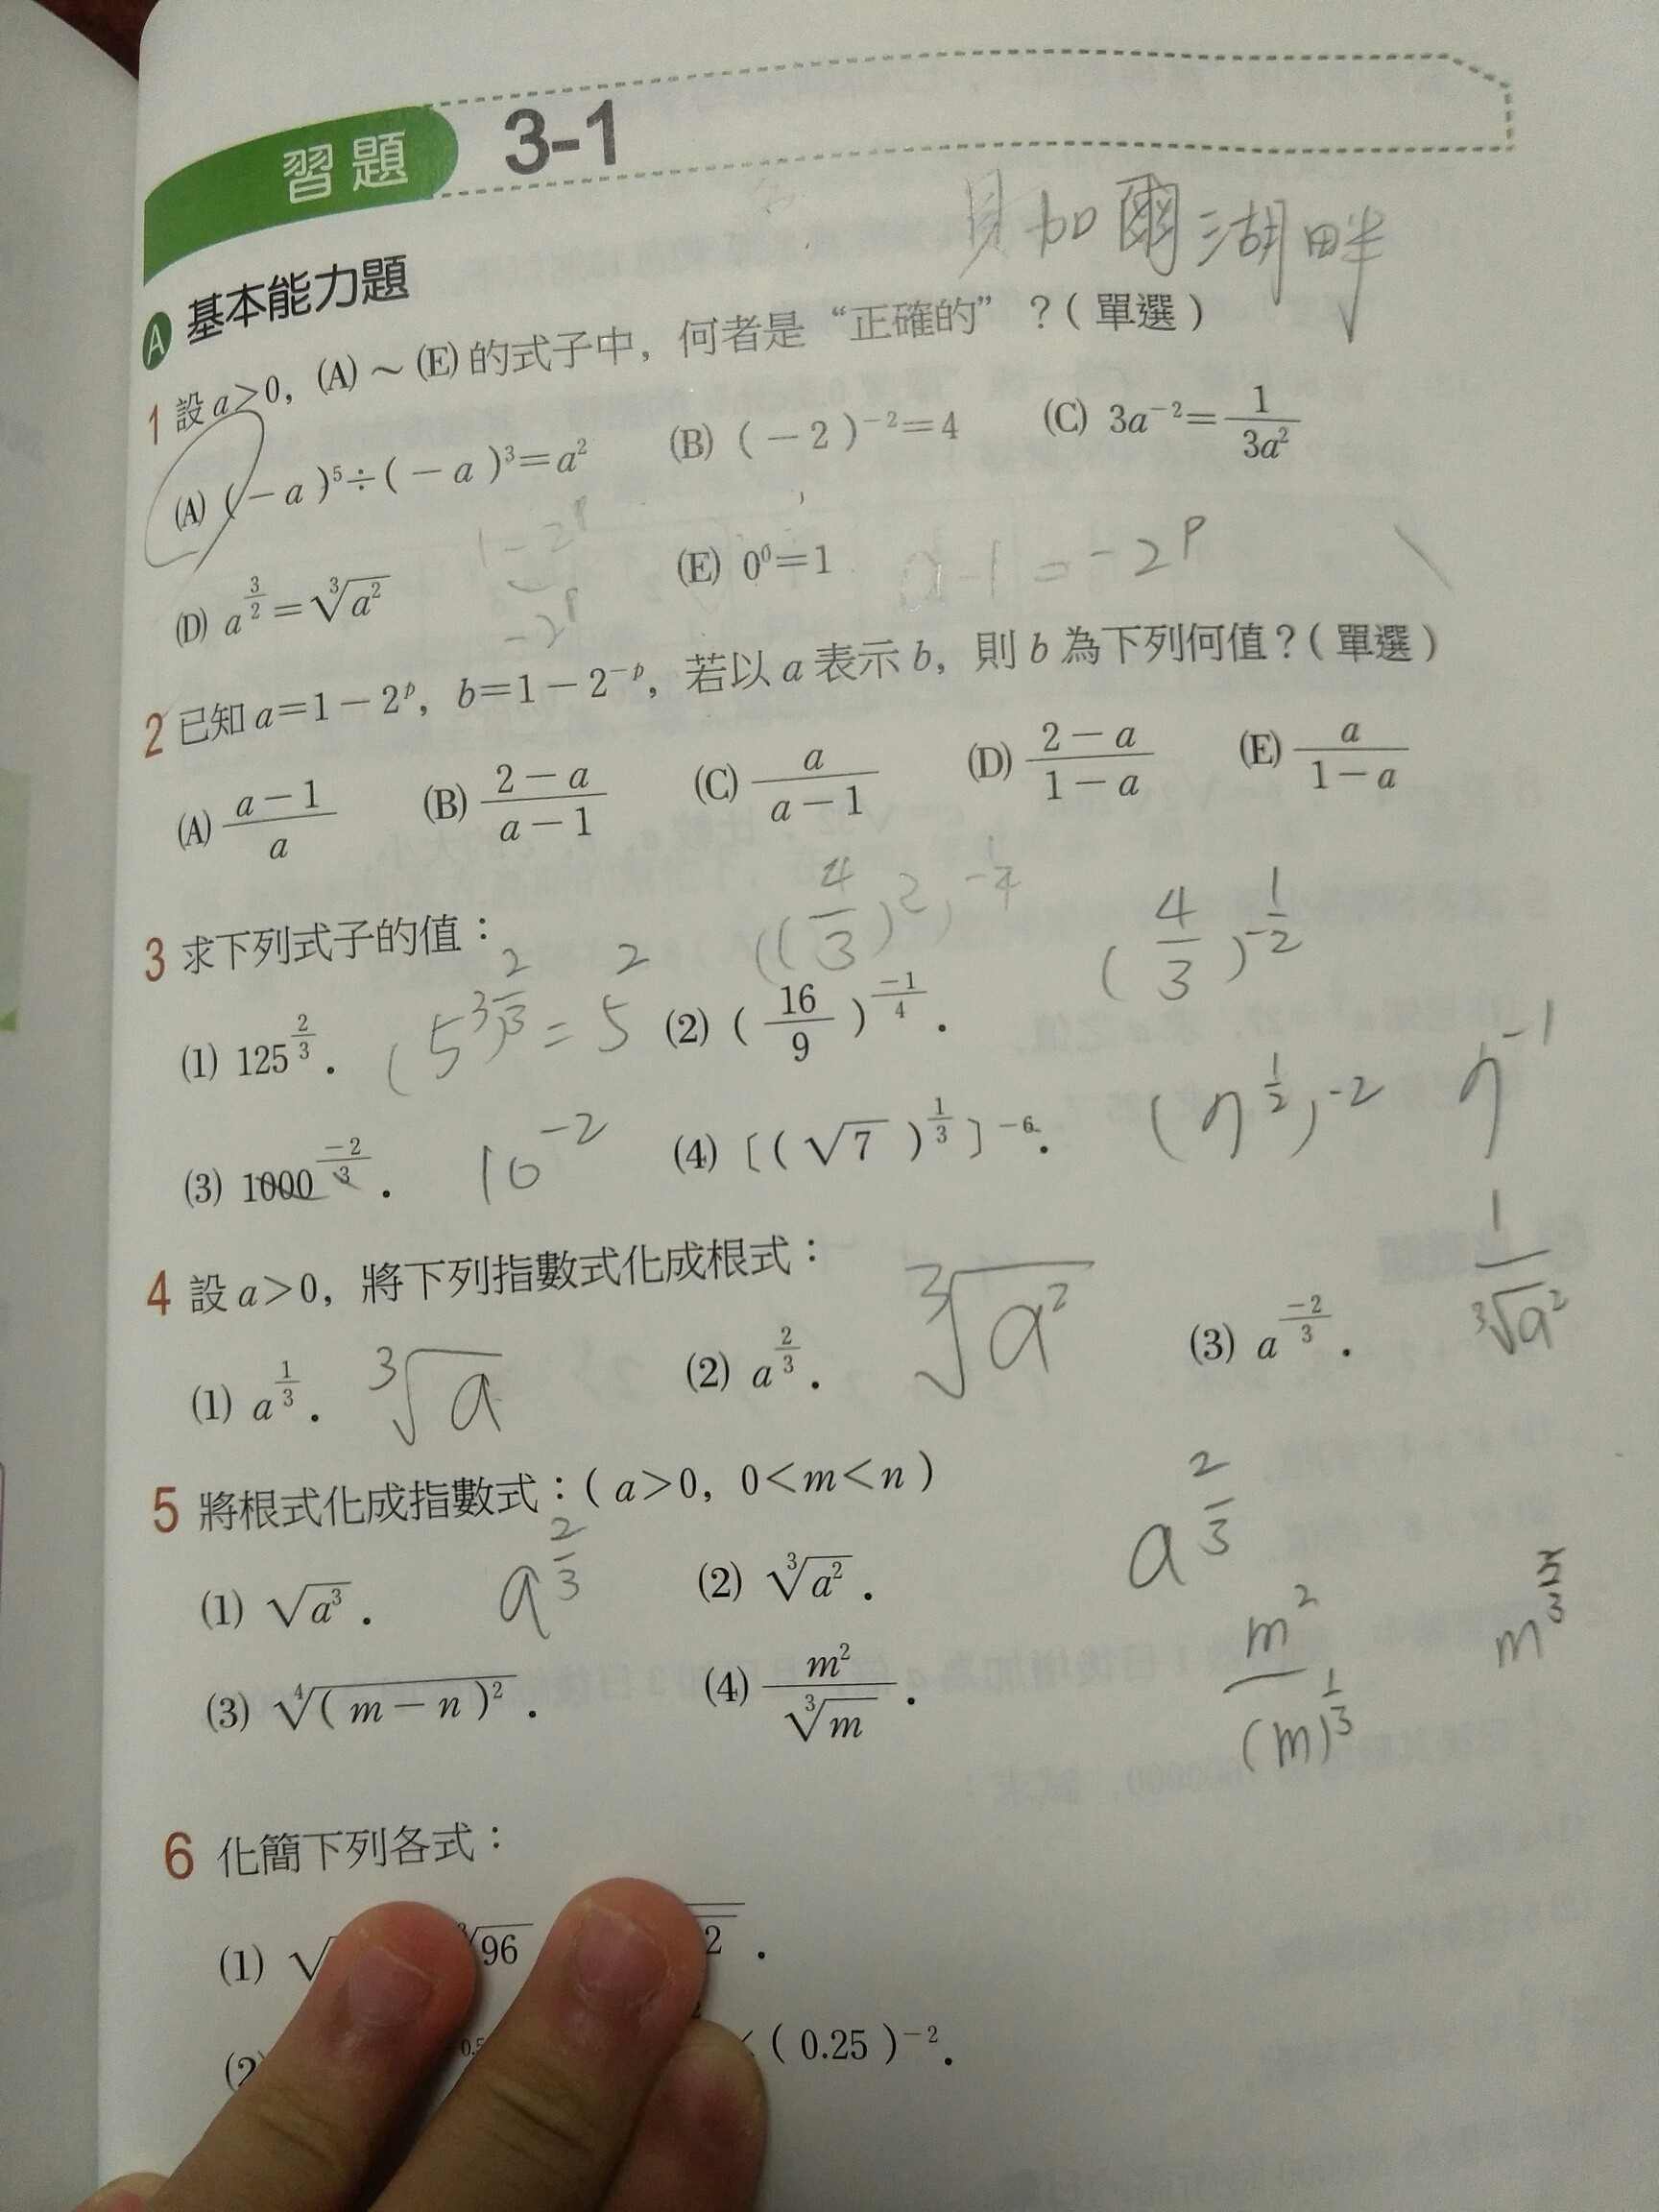 習題 3-1
貝加爾湖畔
A 基本能力題
1 設a>0，(A)～(E)的式子中，何者是“正確的”？(單選)
(A) (−a)⁵÷(−a)³=a² (B) (−2)⁻²=4 (C) 3a⁻²=1/(3a²)
1−2ᵖ
(D) a^(3/2)=∛(a²) (E) 0⁰=1 a−1=−2ᵖ
−2ᵖ
2 已知a=1−2ᵖ，b=1−2⁻ᵖ，若以a表示b，則b為下列何值？(單選)
(A) (a−1)/a (B) (2−a)/(a−1) (C) a/(a−1) (D) (2−a)/(1−a) (E) a/(1−a)
3 求下列式子的值： ((4/3)²)^(−1/4) (4/3)^(−1/2)
(1) 125^(2/3)． (5³)^(2/3)=5² (2) (16/9)^(−1/4)．
(3) 1000^(−2/3)． 10⁻² (4) [(√7)^(1/3)]⁻⁶． (7^(1/2))⁻² 7⁻¹
4 設a>0，將下列指數式化成根式：
(1) a^(1/3)． ∛a (2) a^(2/3)． ∛(a²) (3) a^(−2/3)． 1/∛a²
5 將根式化成指數式：(a>0，0<m<n)
(1) √(a³)． a^(2/3) (2) ∛(a²)． a^(2/3)
(3) ⁴√((m−n)²)． (4) m²/∛m． m²/(m)^(1/3)
6 化簡下列各式：
(1) √ ∛96 2．
(2) (0.25)⁻²．